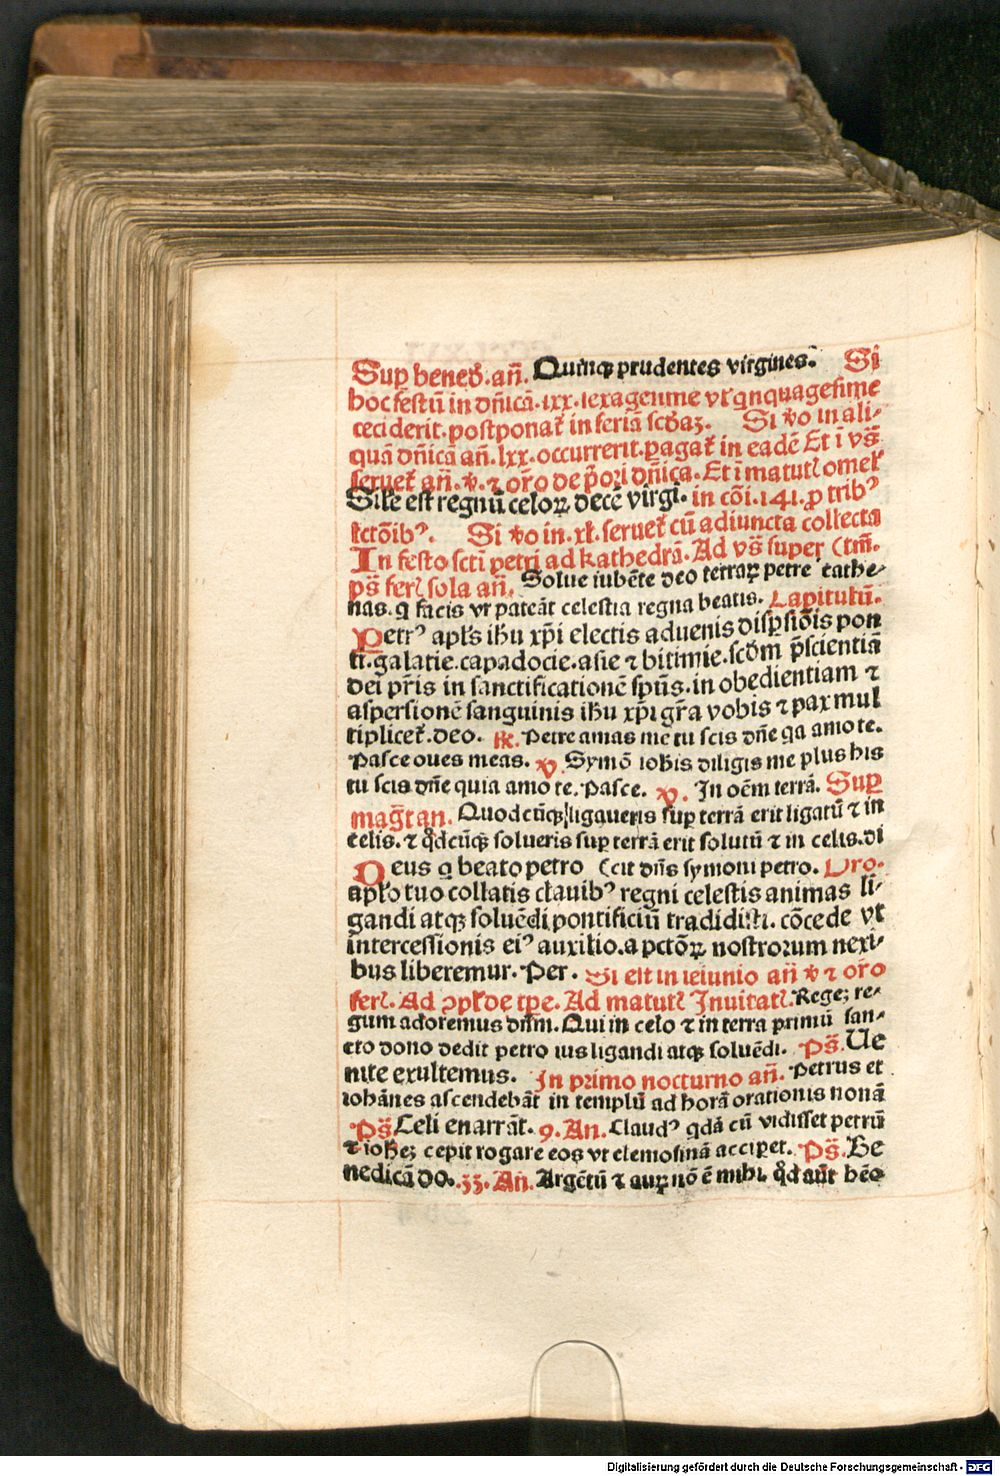 Sup bened̃. añ. Quinqꝫ prudentes virgines. Si
hoc festũ in dñicã. lxx. sexagesime vt̃ qnquagesime
ceciderit. postponat̃ in feriã scd̃az. Si ṽo in ali-
quã dñicã añ. lxx. occurrerit. ꝑagat̃ in eadẽ Et ĩ vs̃
seruet̃ añ. ꝟ. ⁊ or̃o de p̃ori dñica. Et ĩ matutĩ omel̃
Sil̃e est regnũ celoꝝ decẽ virgi. in cõi. 141. ꝑ tribꝰ
lctõibꝰ. Si ṽo in. xl̃. seruet̃ cũ adiuncta collecta
In festo scti petri ad kathedrã. Ad vs̃ super (tm̃.
ps̃ feri̇̃ sola añ. Solue iubẽte deo terraꝝ petre cathe-
nas. q facis vt pateãt celestia regna beatis. Capitulũ.
Petrꝰ apl̃s ihũ xp̃i electis aduenis disꝑsiõis pon
ti. galatie. capadocie. asie ⁊ bitinie. scd̃m p̃scientiã
dei pr̃is in sanctificationẽ spũs. in obedientiam ⁊
aspersionẽ sanguinis ihũ xp̃i gr̃a vobis ⁊ pax mul
tiplicet̃. deo. ℟. Petre amas me tu scis dñe qa amo te.
Pasce oues meas. ꝟ. Symõ ioh̃is diligis me plus his
tu scis dñe quia amo te. Pasce. ꝟ. In oẽm terrã. Sup
mag̃t añ. Quodcũqꝫ ligaueris suꝑ terrã erit ligatũ ⁊ in
celis. ⁊ qd̃cũqꝫ solueris suꝑ terrã erit solutũ ⁊ in celis. di
Deus q beato petro (cit dñs symoni petro. Oro.
apl̃o tuo collatis clauibꝰ regni celestis animas li-
gandi atqꝫ soluẽdi pontificiũ tradidisti. cõcede vt
intercessionis eiꝰ auxilio. a pctõꝝ nostrorum nexi-
bus liberemur. Per. Si est in ieiunio añ ꝟ ⁊ or̃o
feri̇̃. Ad ↄpl̃ de tꝑe. Ad matutĩ Inuitat̃. Regeꝫ re-
gum adoremus dñm. Qui in celo ⁊ in terra primũ san-
cto dono dedit petro ius ligandi atqꝫ soluẽdi. Ps̃. Ue
nite exultemus. In primo nocturno añ. Petrus et
iohãnes ascendebãt in templũ ad horã orationis nonã
Ps̃ Celi enarrãt. 9. An. Claudꝰ qdã cũ vidisset petrũ
⁊ ioh̃eꝫ cepit rogare eos vt elemosinã acciꝑet. Ps̃. Be
nedicã do. 33. Añ. Argẽtũ ⁊ auꝝ nõ ẽ mihi. qd̃ aut̃ hẽo
Digitalisierung gefördert durch die Deutsche Forschungsgemeinschaft - DFG